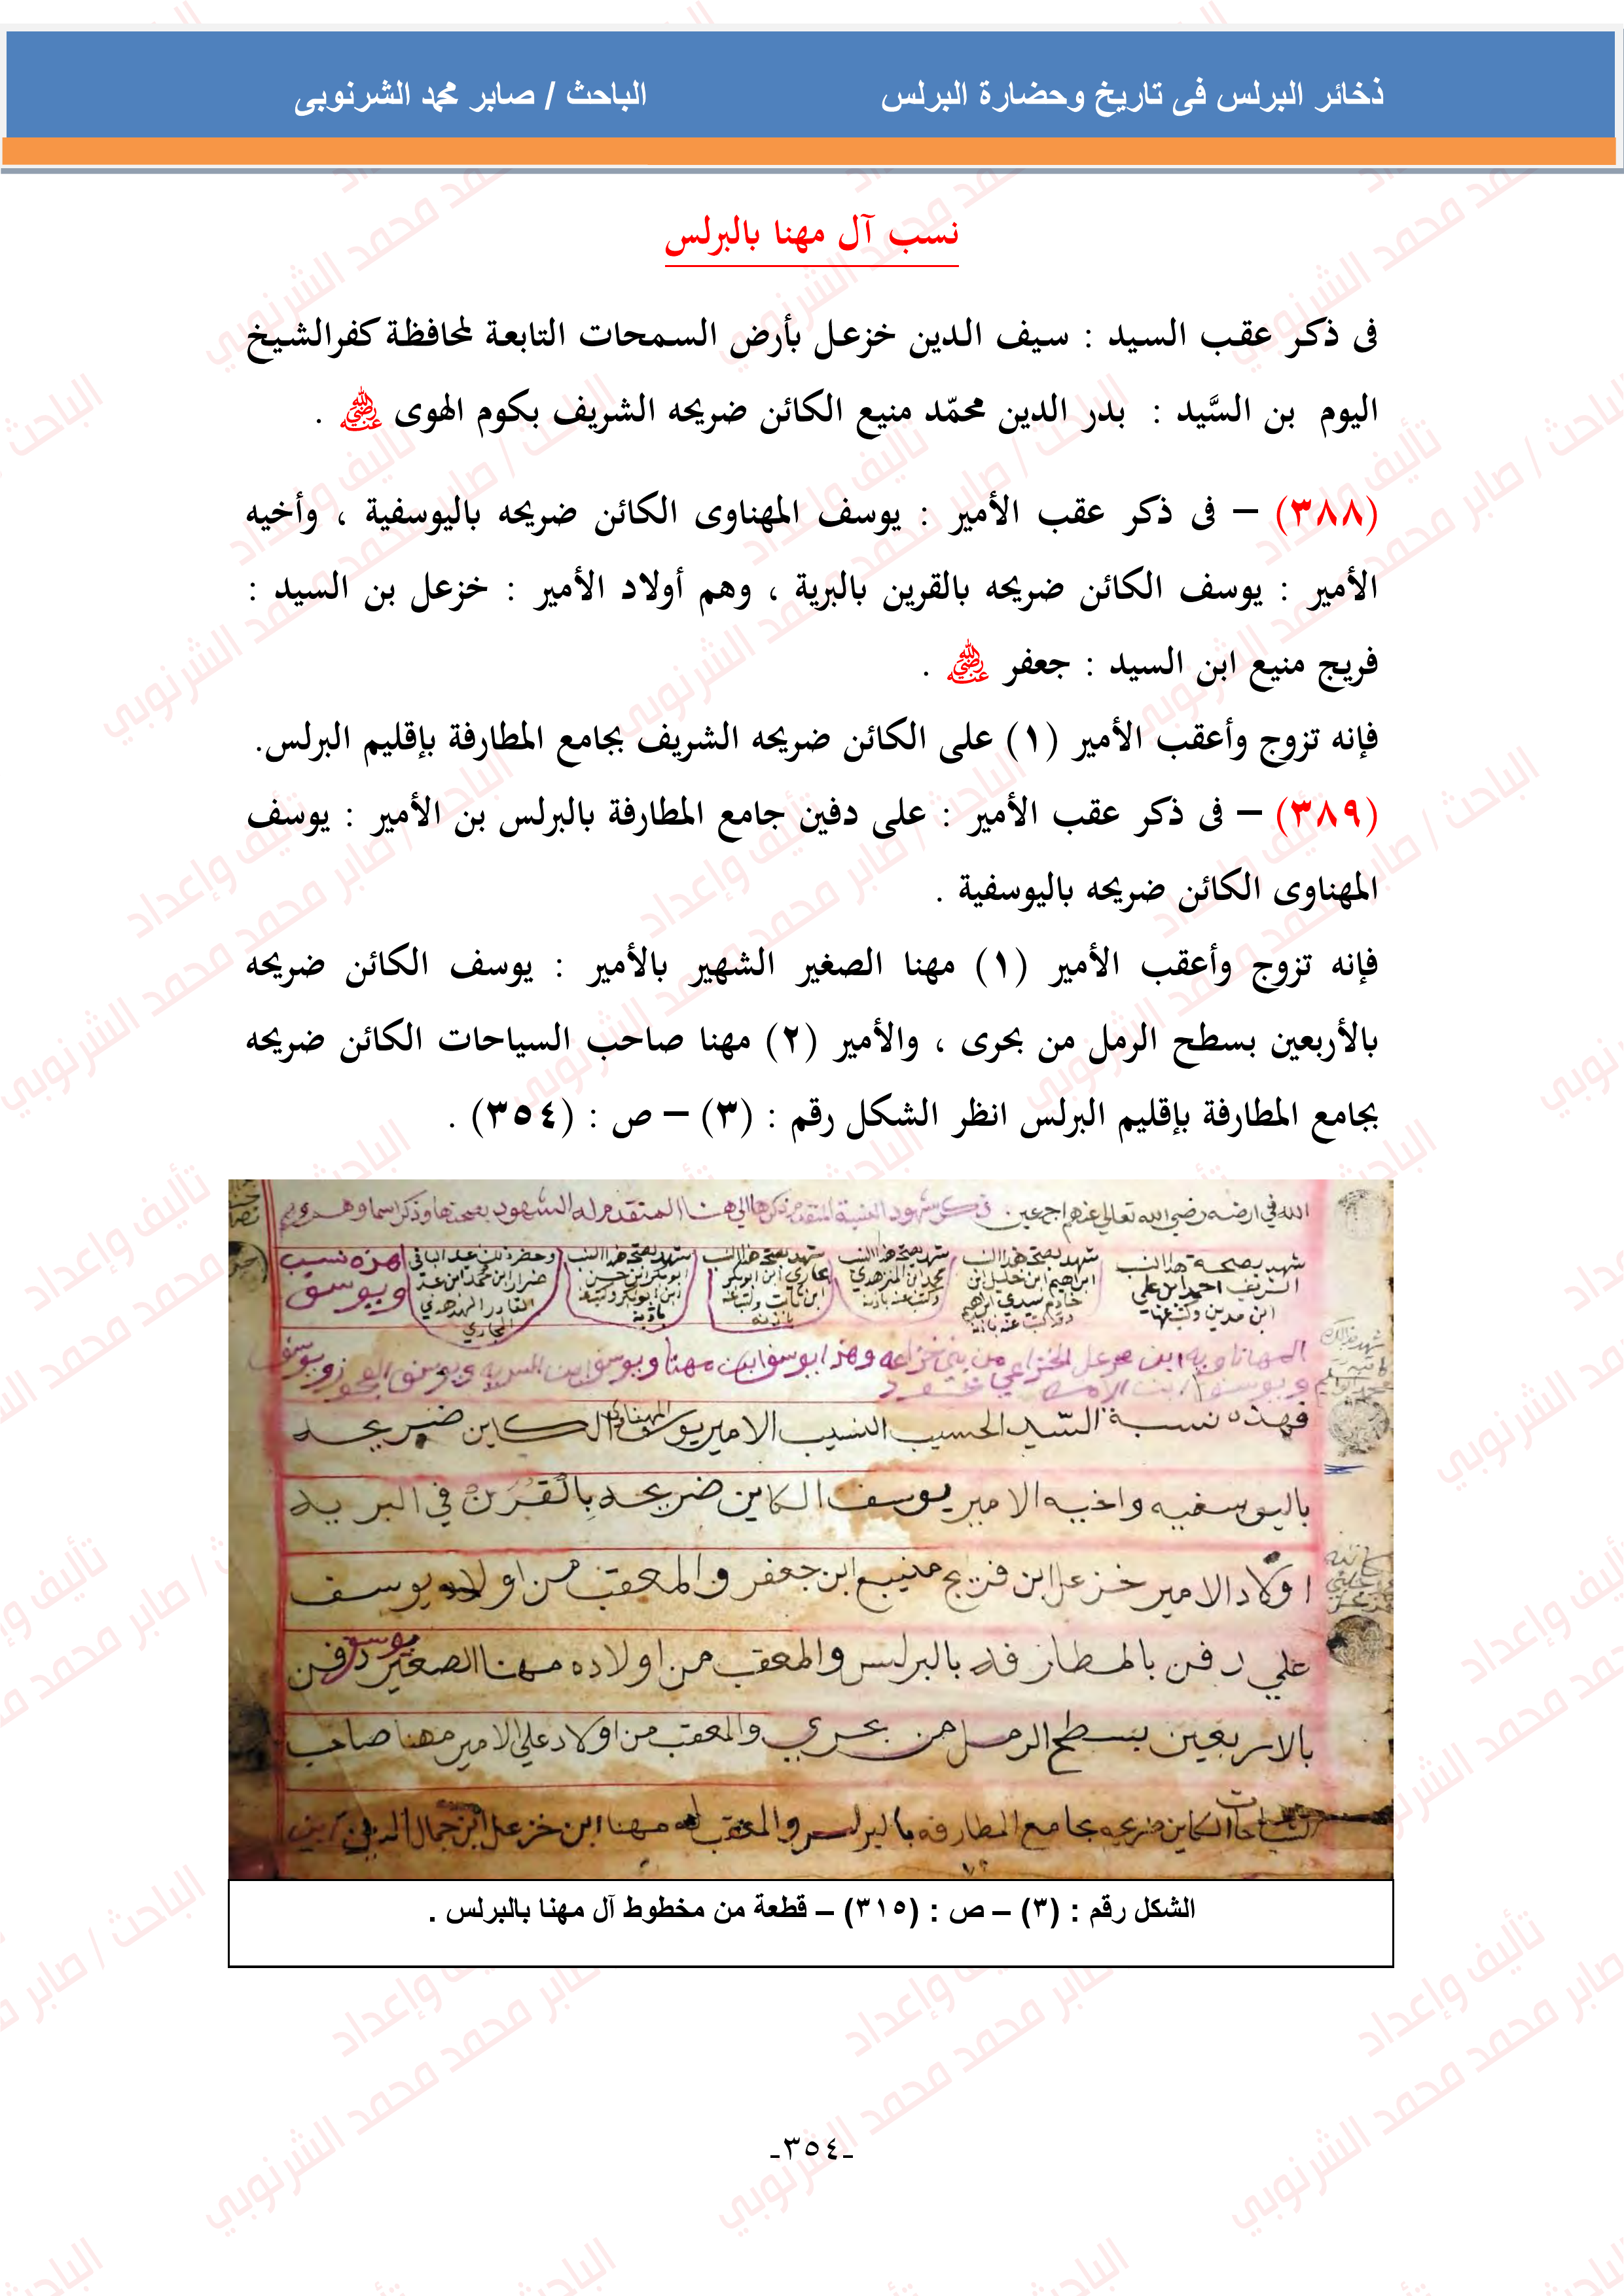 ذخائر البرلس فى تاريخ وحضارة البرلس الباحث / صابر محمد الشرنوبى
نسب آل مهنا بالبرلس
فى ذكر عقب السيد : سيف الدين خزعل بأرض السمحات التابعة لمحافظة كفرالشيخ
اليوم بن السَّيد : بدر الدين محمّد منيع الكائن ضريحه الشريف بكوم الهوى رضي الله عنه .
(٣٨٨) – فى ذكر عقب الأمير : يوسف المهناوى الكائن ضريحه باليوسفية ، وأخيه
الأمير : يوسف الكائن ضريحه بالقرين بالبرية ، وهم أولاد الأمير : خزعل بن السيد :
فريج منيع ابن السيد : جعفر رضي الله عنه .
فإنه تزوج وأعقب الأمير (١) على الكائن ضريحه الشريف بجامع المطارفة بإقليم البرلس.
(٣٨٩) – فى ذكر عقب الأمير : على دفين جامع المطارفة بالبرلس بن الأمير : يوسف
المهناوى الكائن ضريحه باليوسفية .
فإنه تزوج وأعقب الأمير (١) مهنا الصغير الشهير بالأمير : يوسف الكائن ضريحه
بالأربعين بسطح الرمل من بحرى ، والأمير (٢) مهنا صاحب السياحات الكائن ضريحه
بجامع المطارفة بإقليم البرلس انظر الشكل رقم : (٣) – ص : (٣٥٤) .
الله في ارضه رضي الله تعالى عنهم اجمعين
فهذه نسبة السيد الحسيب النسيب الامير يوسف المهناوي الكاين ضريحه
باليوسفيه واخيه الامير يوسف الكاين ضريحه بالقرن في البريه
اولاد الامير خزعل ابن فريج منيع ابن جعفر والمعقب من اولاده يوسف
علي دفن بالمطارفه بالبرلس والمعقب من اولاده مهنا الصغير يوسف دفن
بالاربعين بسطح الرمل من بحري والمعقب من اولاد علي الامير مهنا صاحب
السياحات الكاين ضريحه بجامع المطارفه بالبرلس والمعقب له مهنا ابن خزعل ابن جمال الدين
الشكل رقم : (٣) – ص : (٣١٥) – قطعة من مخطوط آل مهنا بالبرلس .
-٣٥٤-
تأليف وإعداد
الباحث / صابر محمد محمد الشرنوبي